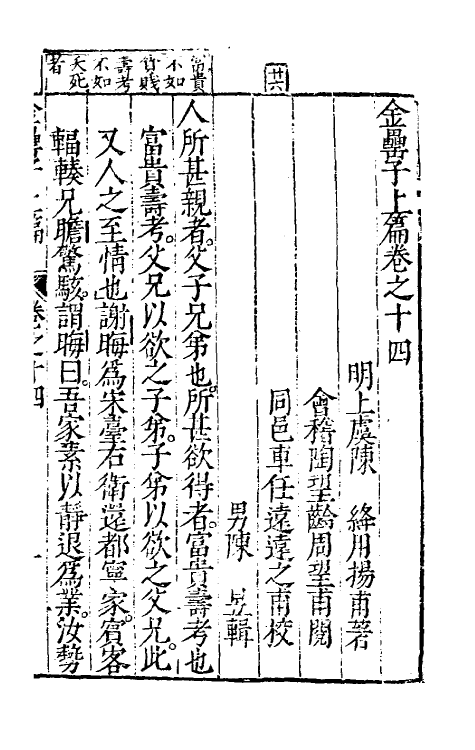 富貴
不如
貧賤
壽考
不如
夭死
者
廿六
金罍子上篇卷之十四
明上虞陳 絳用揚甫著
會稽陶望齡周望甫閱
同邑車任遠遠之甫校
男陳 昱輯
人所甚親者父子兄弟也所甚欲得者富貴壽考也
富貴壽考父兄以欲之子弟子弟以欲之父兄此
又人之至情也謝晦爲宋臺右衛還都寧家賓客
輻輳兄瞻驚駭謂晦曰吾家素以靜退爲業汝勢
金罍子上篇 卷之十四 一